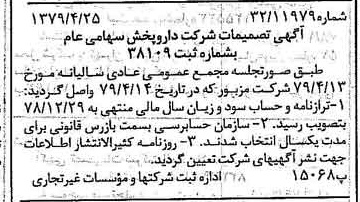 شماره ۳۲/۱۱۹۷۹ ۱۳۷۹/۴/۲۵
آگهی تصمیمات شرکت داروپخش سهامی عام
بشماره ثبت ۳۸۱۰۹
طبق صورتجلسه مجمع عمومی عادی سالیانه مورخ
۷۹/۴/۱۳ شرکت مزبور که در تاریخ ۷۹/۴/۱۴ واصل گردید:
۱- ترازنامه و حساب سود و زیان سال مالی منتهی به ۷۸/۱۲/۲۹
بتصویب رسید. ۲- سازمان حسابرسی بسمت بازرس قانونی برای
مدت یکسال انتخاب شدند. ۳- روزنامه کثیرالانتشار اطلاعات
جهت نشر آگهیهای شرکت تعیین گردید.
پ۱۵۰۶۸ اداره ثبت شرکتها و مؤسسات غیرتجاری